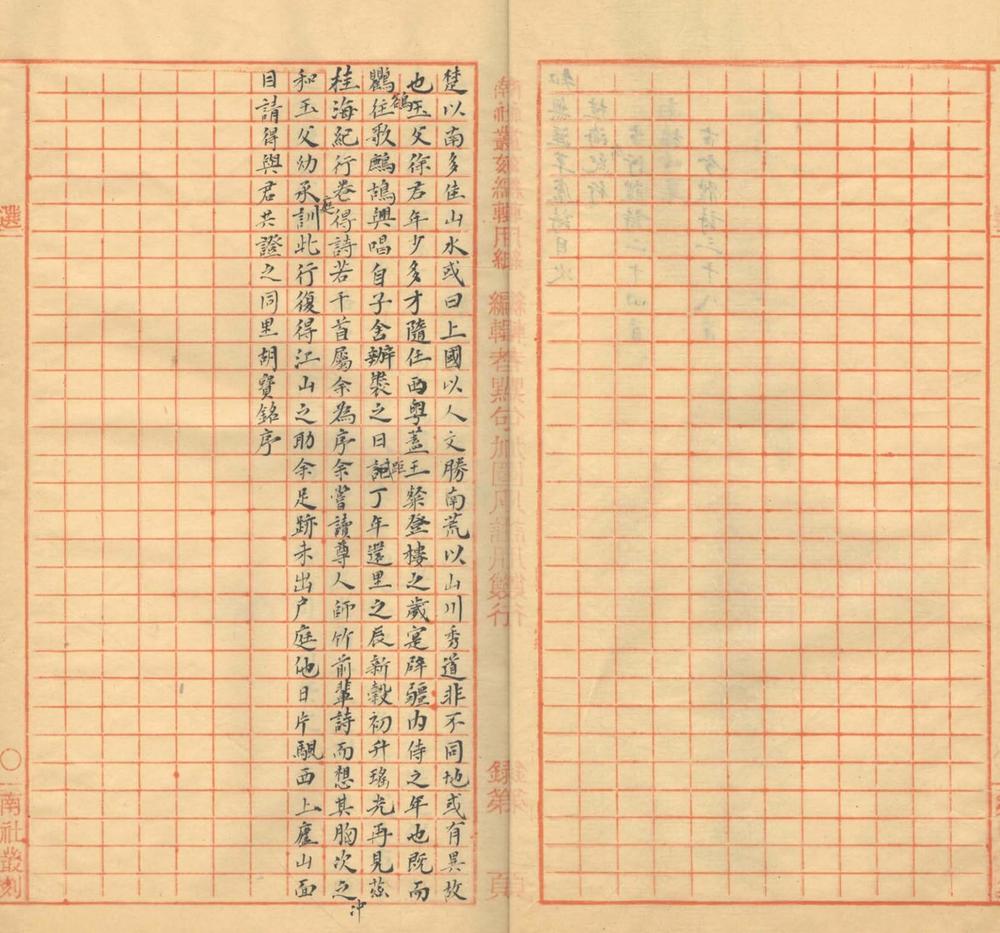 楚以南多佳山水或曰上國以人文勝南荒以山川秀道非不同地或有異故
也玉父徐君年少多才隨任西粵蓋王粲登樓之歲寔辟疆內侍之年也既而
鸜鵒往歌鷓鴣興唱自子舍辦裝之日距丁年還里之辰新穀初升瑤光再見
桂海紀行卷得詩若干首屬余為序余嘗讀尊人師竹前輩詩而想其胸次之沖
和玉父幼承庭訓此行復得江山之助余足跡未出戶庭他日片颿西上廬山面
目請得與君共證之同里胡寶銘序
南社叢刻編輯用紙
編輯者點句加圈凡註用雙行
錄第
頁
選
〇
南社叢刻